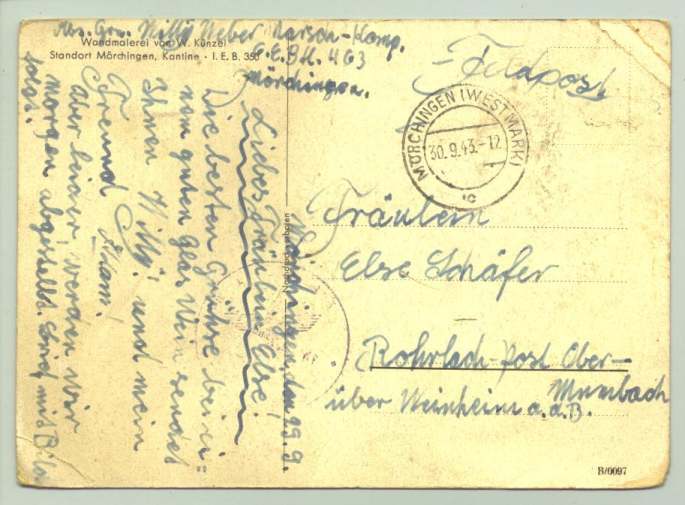 Abs. Gren. Willy Weber Marsch-Komp.
G.E.Btl. 463
Mörchingen.
Wandmalerei von W. Künzel
Standort Mörchingen, Kantine · I. E. B. 350
Feldpost
MÖRCHINGEN (WESTMARK)
30.9.43.-12
c
Mörchingen, den 29. 9.
Liebes Fräulein Else!
Die besten Grüße bei ei=
nem guten Glas Wein sendet
Ihnen Willy! und mein
Freund
Aber leider werden wir
morgen abgestellt. Sind mit Bild
Fräulein
Else Schäfer
Rohrlach-Post Ober-
Mumbach
über Weinheim a. d. B.
B/0097